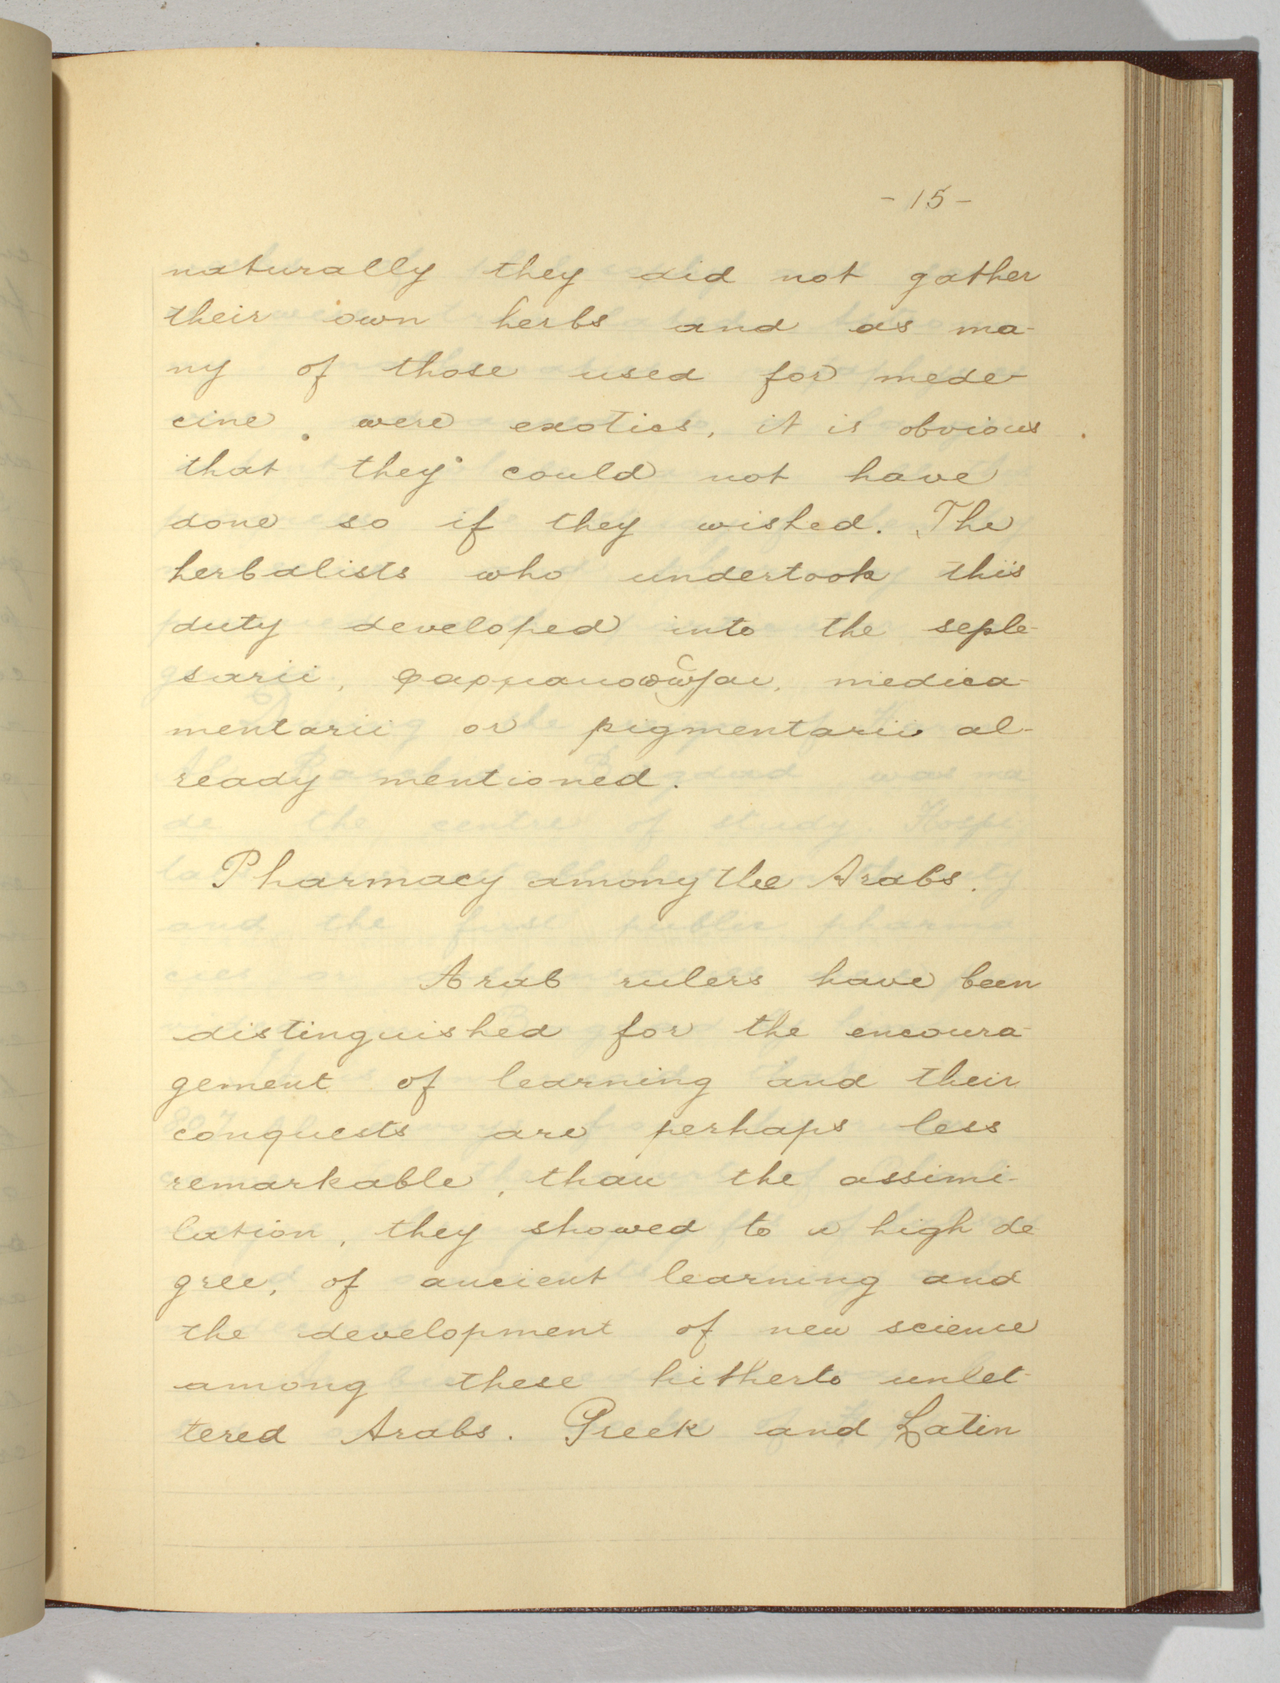 - 15 -
naturally they did not gather
their own herbs and as ma-
ny of those used for mede-
cine were exotics, it is obvious
that they could not have
done so if they wished. The
herbalists who undertook this
duty developed into the seple-
siarii, medica-
mentarii or pigmentarii al-
ready mentioned.
Pharmacy among the Arabs.
Arab rulers have been
distinguished for the encoura-
gement of learning and their
conquests are perhaps less
remarkable, than the assimi-
lation, they showed to a high de
gree, of ancient learning and
the development of new science
among these hitherto unlet-
tered Arabs. Greek and Latin